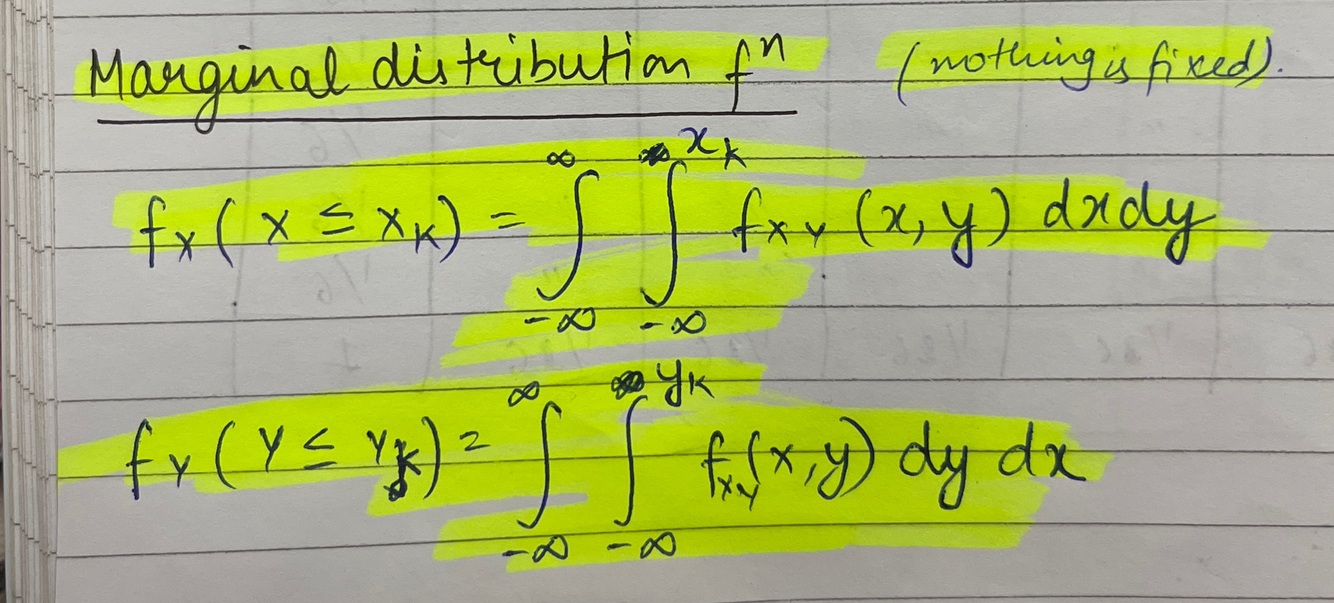 Marginal distribution fⁿ (nothing is fixed).
f_X ( X ≤ x_k) = ∫_{-∞}^{∞} ∫_{-∞}^{x_k} f_{XY} (x, y) dxdy
f_Y ( Y ≤ Y_k) = ∫_{-∞}^{∞} ∫_{-∞}^{y_k} f_{XY}(x,y) dy dx